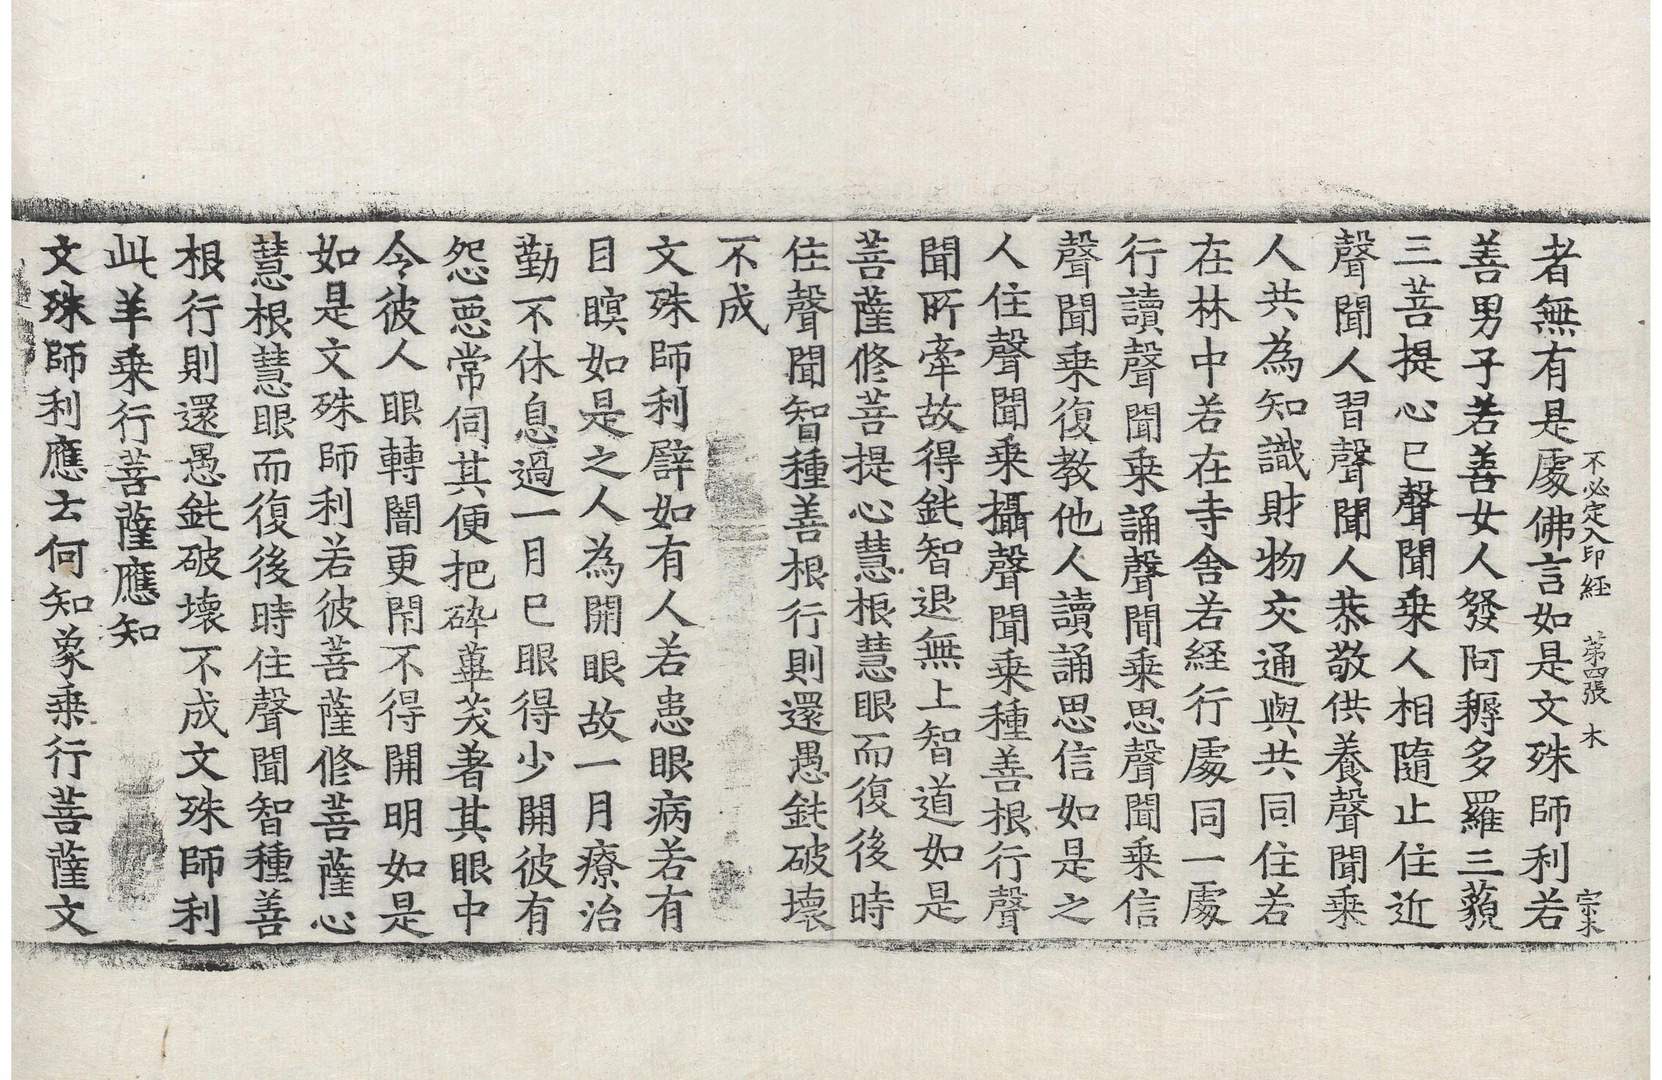 不必定入印経 第四張 木 宗木
者無有是處佛言如是文殊師利若
善男子若善女人發阿耨多羅三藐
三菩提心已聲聞乗人相隨止住近
聲聞人習聲聞人恭敬供養聲聞乗
人共為知識財物交通與共同住若
在林中若在寺舍若経行處同一處
行讀聲聞乗誦聲聞乗思聲聞乗信
聲聞乗復教他人讀誦思信如是之
人住聲聞乗攝聲聞乗種善根行聲
聞所牽故得鈍智退無上智道如是
菩薩修菩提心慧根慧眼而復後時
住聲聞智種善根行則還愚鈍破壞
不成
文殊師利譬如有人若患眼病若有
目瞑如是之人為開眼故一月療治
勤不休息過一月已眼得少開彼有
怨惡常伺其便把碎蓽茇著其眼中
令彼人眼轉闇更閇不得開明如是
如是文殊師利若彼菩薩修菩薩心
慧根慧眼而復後時住聲聞智種善
根行則還愚鈍破壞不成文殊師利
此羊乗行菩薩應知
文殊師利應云何知象乗行菩薩文